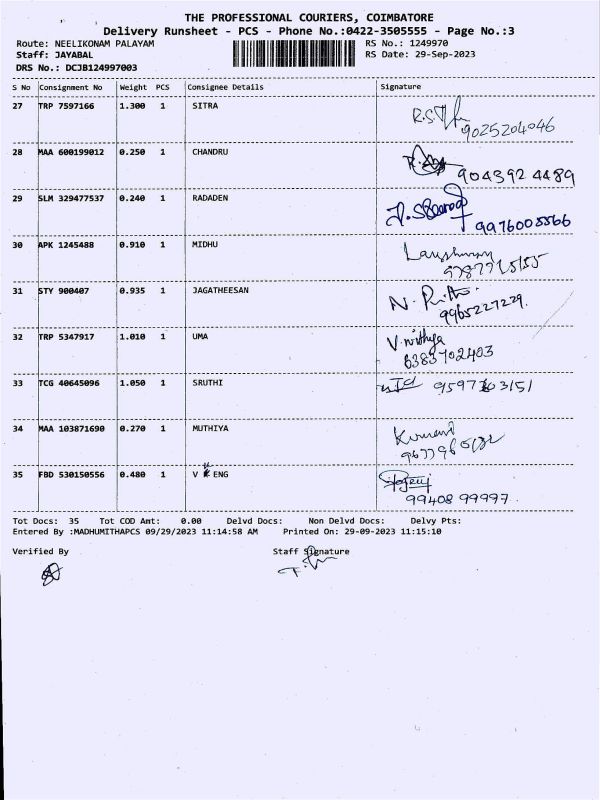 THE PROFESSIONAL COURIERS, COIMBATORE
Delivery Runsheet - PCS - Phone No.:0422-3505555 - Page No.:3
Route: NEELIKONAM PALAYAM RS No.: 1249970
Staff: JAYABAL RS Date: 29-Sep-2023
DRS No.: DCJB124997003
S No Consignment No Weight PCS Consignee Details Signature
27 TRP 7597166 1.300 1 SITRA
9025204046
28 MAA 600199012 0.250 1 CHANDRU
904392 4489
29 SLM 329477537 0.240 1 RADADEN
9976005566
30 APK 1245488 0.910 1 MIDHU
31 STY 900407 0.935 1 JAGATHEESAN
9965227229.
32 TRP 5347917 1.010 1 UMA V.nithya
6383702403
33 TCG 40645096 1.050 1 SRUTHI
34 MAA 103871690 0.270 1 MUTHIYA
35 FBD 530150556 0.480 1 V K ENG
99408 99997
Tot Docs: 35 Tot COD Amt: 0.00 Delvd Docs: Non Delvd Docs: Delvy Pts:
Entered By :MADHUMITHAPCS 09/29/2023 11:14:58 AM Printed On: 29-09-2023 11:15:10
Verified By Staff Signature